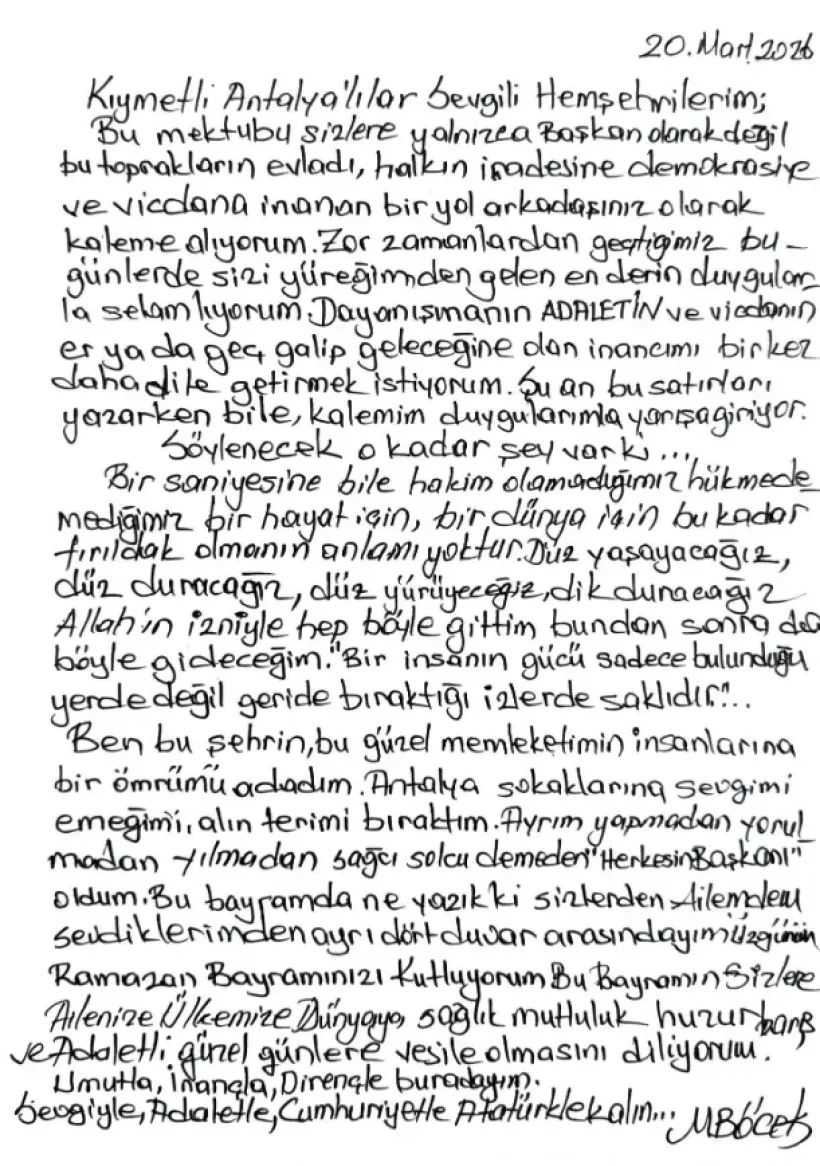 20.Mart 2026
Kıymetli Antalya'lılar Sevgili Hemşehrilerim;
Bu mektubu sizlere yalnızca Başkan olarak değil
bu toprakların evladı, halkın iradesine demokrasiye
ve vicdana inanan bir yol arkadaşınız olarak
kaleme alıyorum. Zor zamanlardan geçtiğimiz bu-
günlerde sizi yüreğimden gelen en derin duygular
la selamlıyorum. Dayanışmanın ADALETİN ve vicdanın
er ya da geç galip geleceğine olan inancımı bir kez
daha dile getirmek istiyorum. Şu an bu satırları
yazarken bile, kalemim duygularımla yarışa giriyor.
Söylenecek o kadar şey varki...
Bir saniyesine bile hakim olamadığımız hükmede
mediğimiz bir hayat için, bir dünya için bu kadar
fırıldak olmanın anlamı yoktur. Düz yaşayacağız,
düz duracağız, düz yürüyeceğiz, dik duracağız
Allah'ın izniyle hep böyle gittim bundan sonra da
böyle gideceğim. "Bir insanın gücü sadece bulunduğu
yerde değil geride bıraktığı izlerde saklıdır."...
Ben bu şehrin, bu güzel memleketimin insanlarına
bir ömrümü adadım. Antalya sokaklarına sevgimi
emeğimi, alın terimi bıraktım. Ayrım yapmadan yorul
madan yılmadan sağcı solcu demeden "Herkesin Başkanı"
oldum. Bu bayramda ne yazıkki sizlerden Ailemden
sevdiklerimden ayrı dört duvar arasındayım Üzgünüm
Ramazan Bayramınızı Kutluyorum Bu Bayramın Sizlere
Ailenize Ülkemize Dünyaya, sağlık mutluluk huzur barış
ve Adaletli güzel günlere vesile olmasını diliyorum.
Umutla, İnançla, Dirençle buradayım.
Sevgiyle, Adaletle, Cumhuriyetle Atatürkle kalın... MBöcek